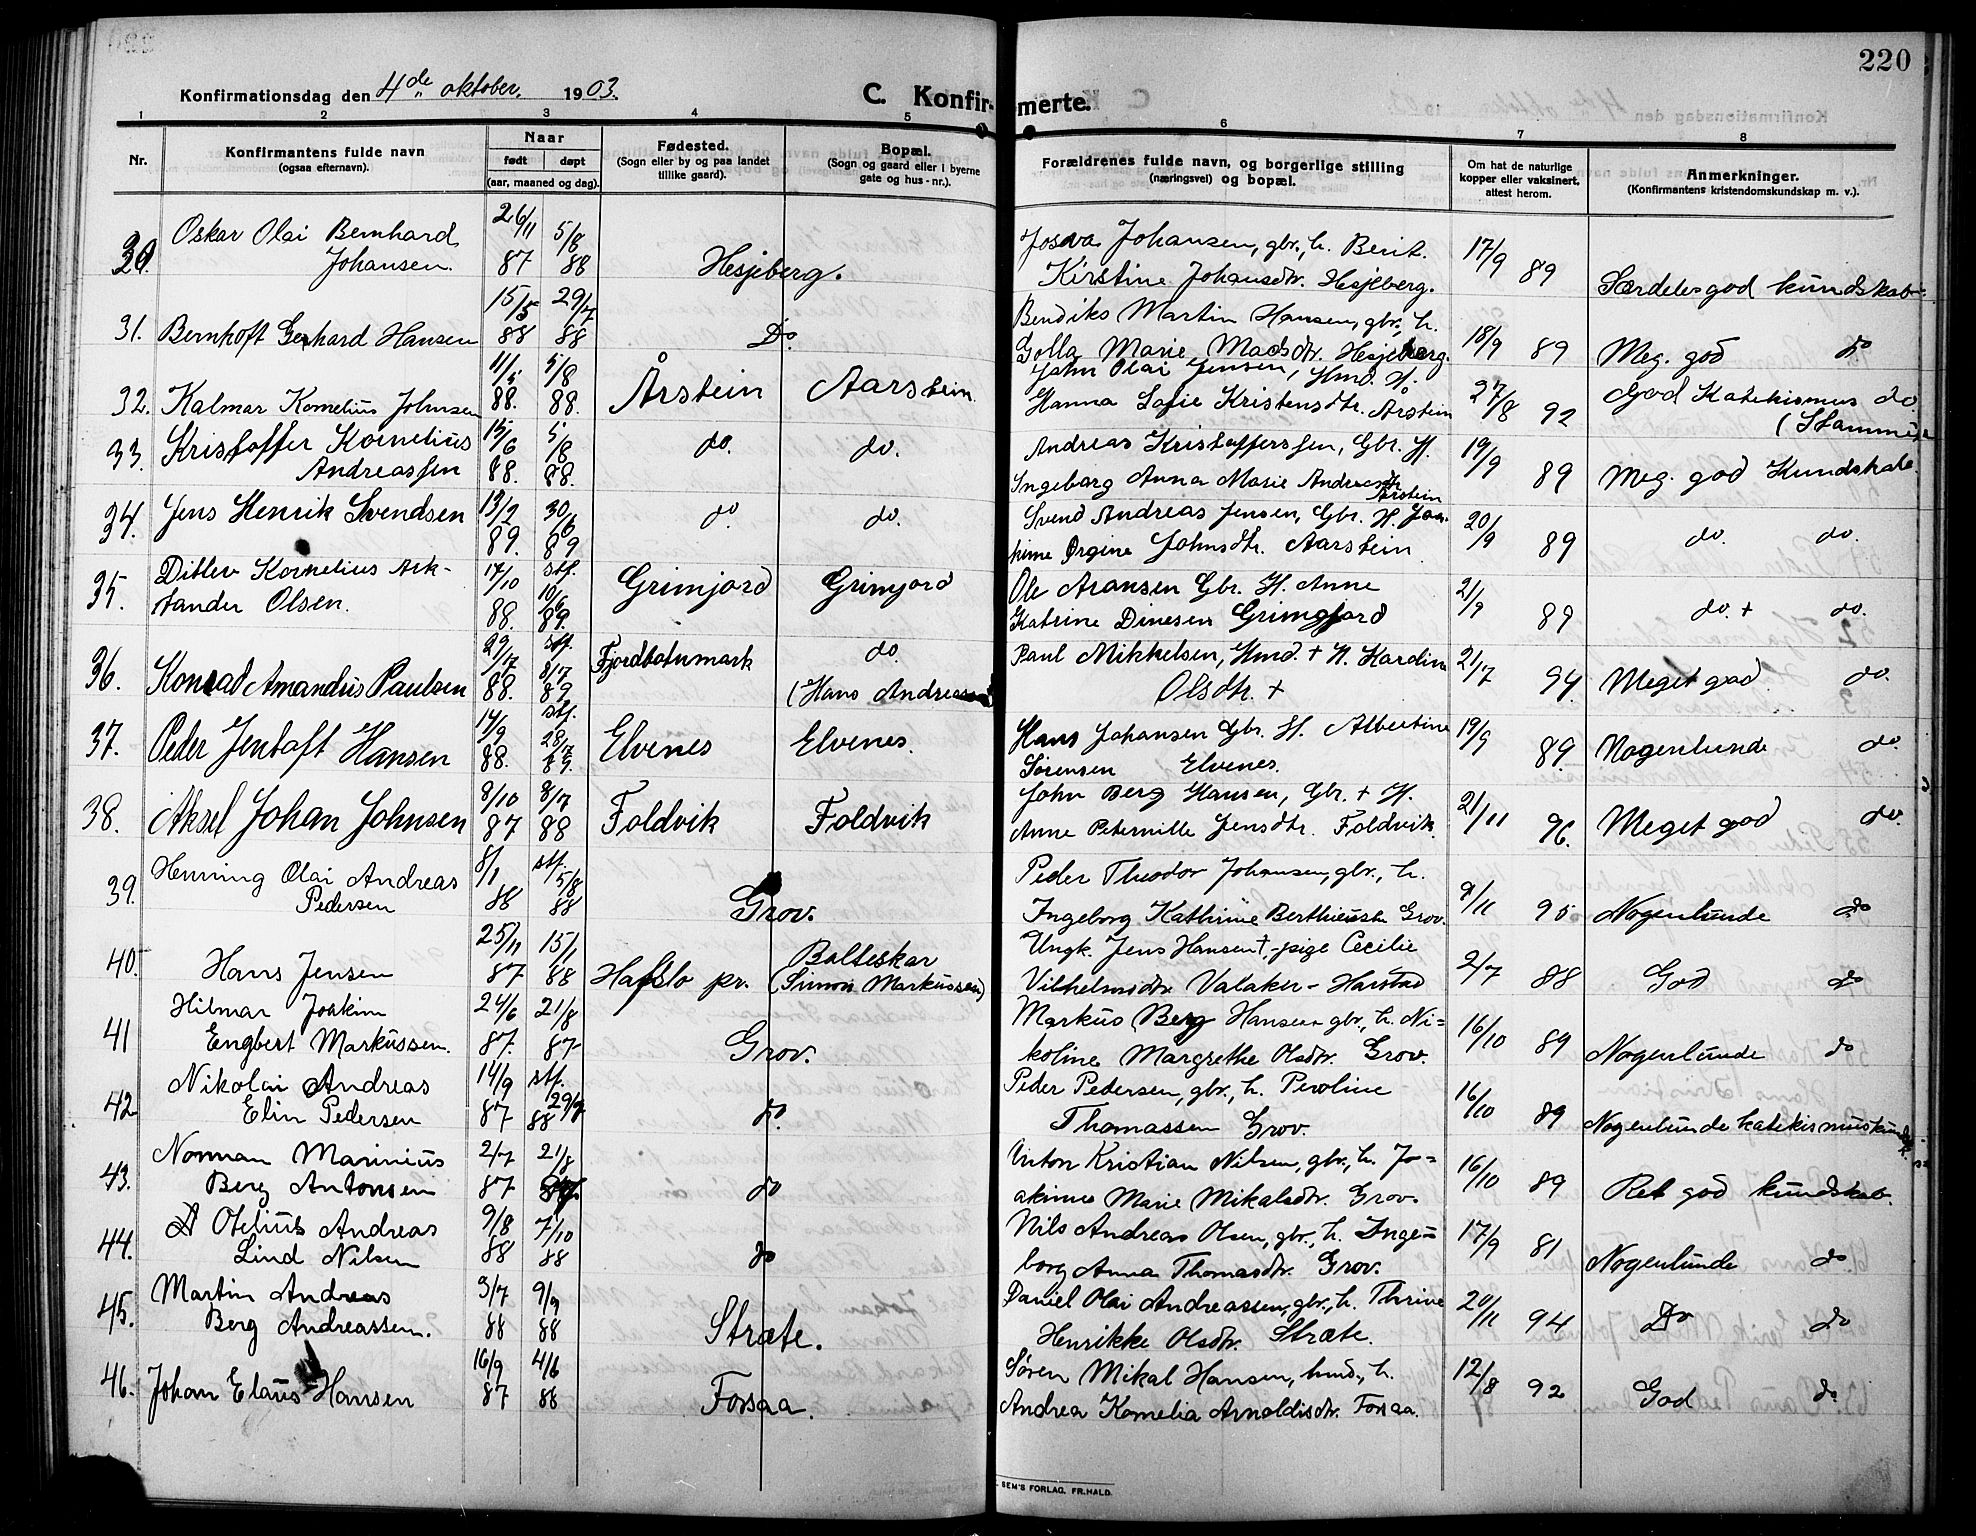 220
Konfirmationsdag den 4de oktober. 1903.
C. Konfirmerte.
1 2 3 4 5 6 7 8
Nr.
Konfirmantens fulde navn
(ogsaa efternavn).
Naar
født døpt
(aar, maaned og dag).
Fødested.
(Sogn eller by og paa landet
tillike gaard).
Bopæl.
(Sogn og gaard eller i byerne
gate og hus-nr.).
Forældrenes fulde navn, og borgerlige stilling
(næringsvei) og bopæl.
Om hat de naturlige
kopper eller vaksinert,
attest herom.
Anmerkninger.
(Konfirmantens kristendomskundskap m. v.).
30. Oskar Olai Bernhard 26/11 5/8 Josva Johansen, gbr., h. Berit 17/9
Johansen. 87 88 Hesjeberg. Kirstine Johansdtr. Hesjeberg. 89 Særdeles god kundskab.
15/5 29/7 Bendiks Martin Hansen, gbr., h.
31. Bernhoft Gerhard Hansen 88 88 Do. Golla Marie Madsdtr. Hesjeberg. 18/9 89 Meg. god do
11/5 5/8 John Olai Jensen, Hmd. H.
32. Kalmar Kornelius Johnsen 88. 88. Årstein Aarstein. Hanna Sofie Kristensdtr. Årstein 27/8 92 God Katekismus do.
33. Kristoffer Kornelius 15/6 5/8 do. do. Andreas Kristofferssen, Gbr. H. 19/9 (Stamme
Andreassen 88. 88. Ingeborg Anna Marie Andreasdtr. Årstein 89 Meg. god Kundskab
34. Jens Henrik Svendsen 13/2 30/6 do. do. Svend Andreas Jensen, Gbr. H. Joa- 20/9
89. 89 kime Ørgine Johnsdtr. Aarstein 89 do. do.
35. Ditlev Kornelius Ark- 17/10 stf. 10/6 Grimjord Grimjord Ole Aronsen Gbr. H. Anne 21/9
tander Olsen. 88. 89. Katrine Dinesen Grimjord 89 do. + do.
36. 29/12 stf. 8/17 Fjordbotnmark do. Paul Mikkelsen, Hmd. + H. Hardine 21/17
Konrad Amandus Paulsen 88. 89 (Hans Andreassen) Olsdtr. + 94. Meget god do.
37. Peder Jentoft Hansen 14/9 stf. 28/12 Elvenes Elvenes. Hans Johansen Gbr. H. Albertine 19/9
88. 89. Sørensen Elvenes. 89. Nogenlunde do.
38. Aksel Johan Johnsen 8/10 8/17 Foldvik Foldvik John Berg Hansen, Gbr. + H. 21/11
87 88 Anne Peternille Jensdtr. Foldvik. 96. Meget god do.
39. Henning Olai Andreas 8/1 stf. 5/8 Peder Theodor Johansen, gbr., h. 9/11
Pedersen 88 88 Grov. Ingeborg Kathrine Berthieusdtr Grov. 95 Nogenlunde do
40. 25/11 15/1 Balteskar Ungk. Jens Hansen +, pige Cecilie 2/7
Hans Jensen 87 88 Hafslo pr. (Simon Markussen) Vilhelmsdtr. Valaker - Harstad 88 God do
41 Hilmar Joakim 24/6 21/8 Markus Berg Hansen gbr., h. Ni= 16/10
Engbert Markussen. 87. 87 Grov. koline Margrethe Olsdtr. Grov. 89 Nogenlunde do
42 Nikolai Andreas 14/9 stf. Peder Pedersen, gbr., h. Peroline 16/10
Elin Pedersen 87 88 29/7 do. Thomassen Grov. 89 Nogenlunde katekismuskundsk.
43. Norman Marinius 2/7 21/8 Anton Kristian Nilsen, gbr., h. Jo= 16/10
Berg Antonsen 87 do akime Marie Mikalsdtr. Grov. 89 Ret god kundskab
44. Otelius Andreas 9/8 7/10 Nils Andreas Olsen, gbr., h. Inge= 17/9
Lind Nilsen 88 88 do borg Anna Thomasdtr. Grov. 81 Nogenlunde do
45. Martin Andreas 3/7 9/9 Daniel Olai Andreassen, gbr., h. Thrine 20/11
Berg Andreassen. 88 88 Stræte. Henrikke Olsdtr. Stræte. 94 Do do
46. Johan Elaus Hansen 16/9 4/6 Søren Mikal Hansen, hmd., h. 12/8
87 88 Forsaa. Andrea Kornelia Arnoldisdtr. Forsaa. 92 God do
SEM'S FORLAG, FR.HALD.